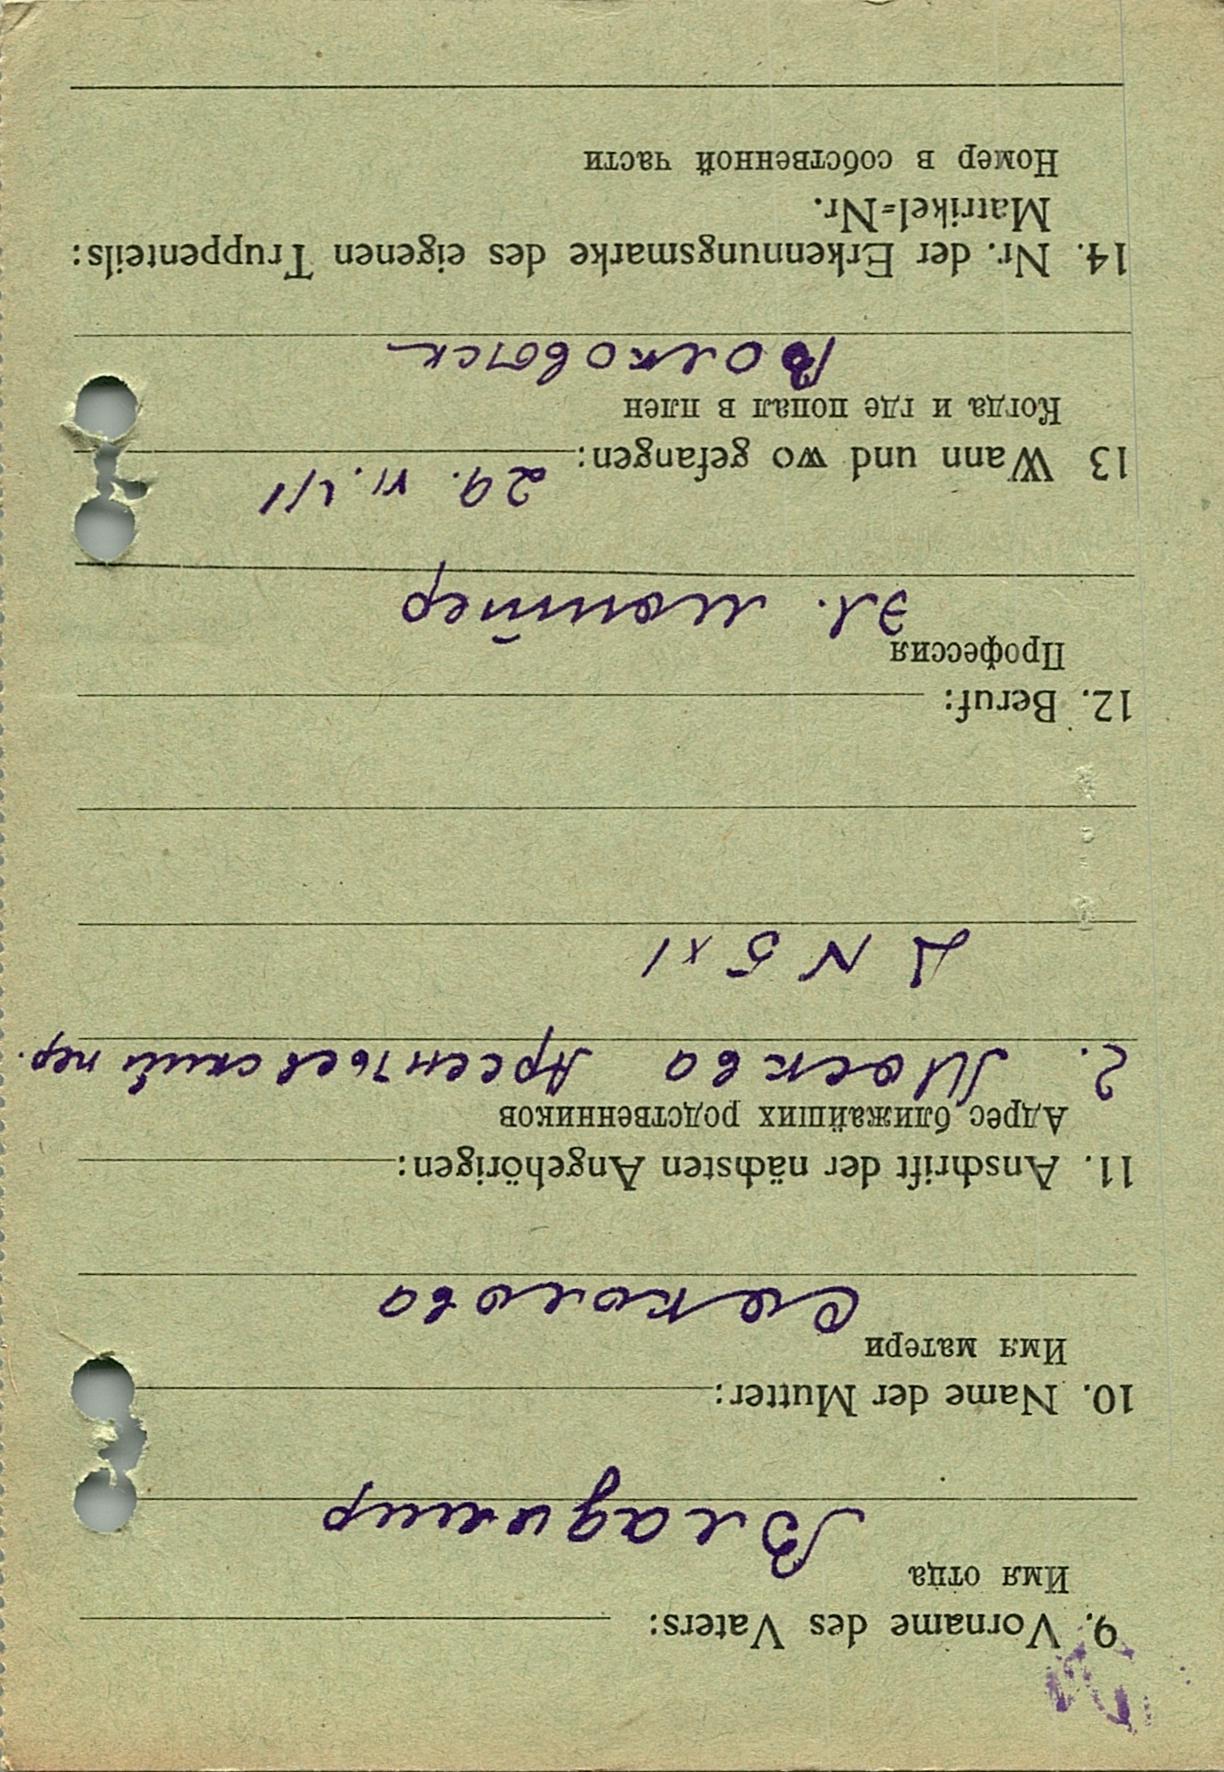 9. Vorname des Vaters:
Имя отца
Владимир
10. Name der Mutter:
Имя матери
Соколова
11. Anschrift der nächsten Angehörigen:
Адрес ближайших родственников
г. Москва Арсентьевский пер.
Д N 5 к 1
12. Beruf:
Профессия
Эл. монтёр
13 Wann und wo gefangen: 29. VI. 41
Когда и где попал в плен
Волковыск
14. Nr. der Erkennungsmarke des eigenen Truppenteils:
Matrikel=Nr.
Номер в собственной части